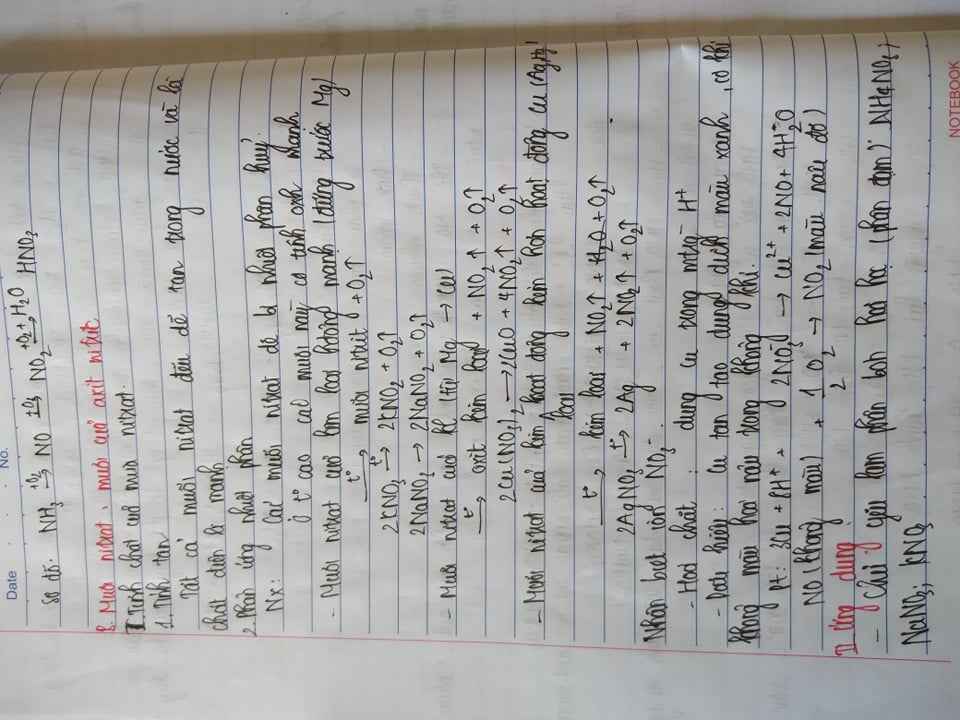 Date : No.
Sơ đồ: NH₃ +O₂→ NO +O₂→ NO₂ +O₂+H₂O→ HNO₃
B. Muối nitrat, muối của axit nitric
I. Tính chất của muối nitrat.
1. Tính tan
Tất cả muối nitrat đều dễ tan trong nước và là
chất điện li mạnh
2. Phản ứng nhiệt phân
Nx: Các muối nitrat dễ bị nhiệt phân hủy.
ở t° cao các muối này có tính oxh mạnh
- Muối nitrat của kim loại hoạt động mạnh (đứng trước Mg)
t°→ muối nitrit + O₂↑
2KNO₃ t°→ 2KNO₂ + O₂↑
2NaNO₃ → 2NaNO₂ + O₂↑
- Muối nitrat của KL (từ Mg → Cu)
t°→ oxit kim loại + NO₂↑ + O₂↑
2Cu(NO₃)₂ → 2CuO + 4NO₂↑ + O₂↑
- Muối nitrat của kim loại hoạt động kém hơn hoạt động Cu (Ag, Hg)
t°→ kim loại + NO₂↑ + H₂O + O₂↑
2AgNO₃ t°→ 2Ag + 2NO₂↑ + O₂↑
Nhận biết ion NO₃⁻.
- Hoá chất : dùng Cu trong mtrg H⁺
- Dấu hiệu: Cu tan tạo dung dịch màu xanh, có khí
không màu hoá nâu trong không khí.
Pt: 3Cu + 8H⁺ + 2NO₃⁻ → Cu²⁺ + 2NO + 4H₂O
NO (không màu) + 1/2 O₂ → NO₂ (màu nâu đỏ)
II Ứng dụng
- Chủ yếu làm phân bón hoá học (phân đạm) NH₄NO₃,
NaNO₃, KNO₃
NOTEBOOK